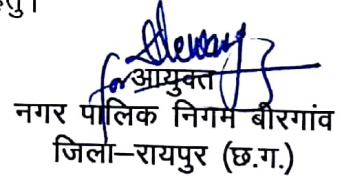 हेतु।
for आयुक्त
नगर पालिक निगम बीरगांव
जिला–रायपुर (छ.ग.)